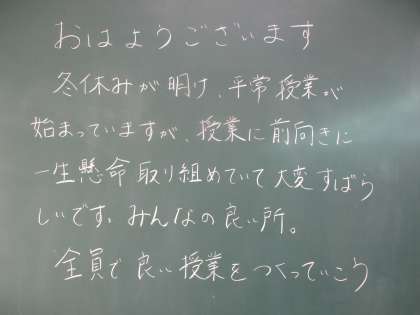 おはようございます
冬休みが明け、平常授業が
始まっていますが、授業に前向きに
一生懸命取り組めていて大変すばら
しいです。みんなの良い所。
全員で良い授業をつくっていこう